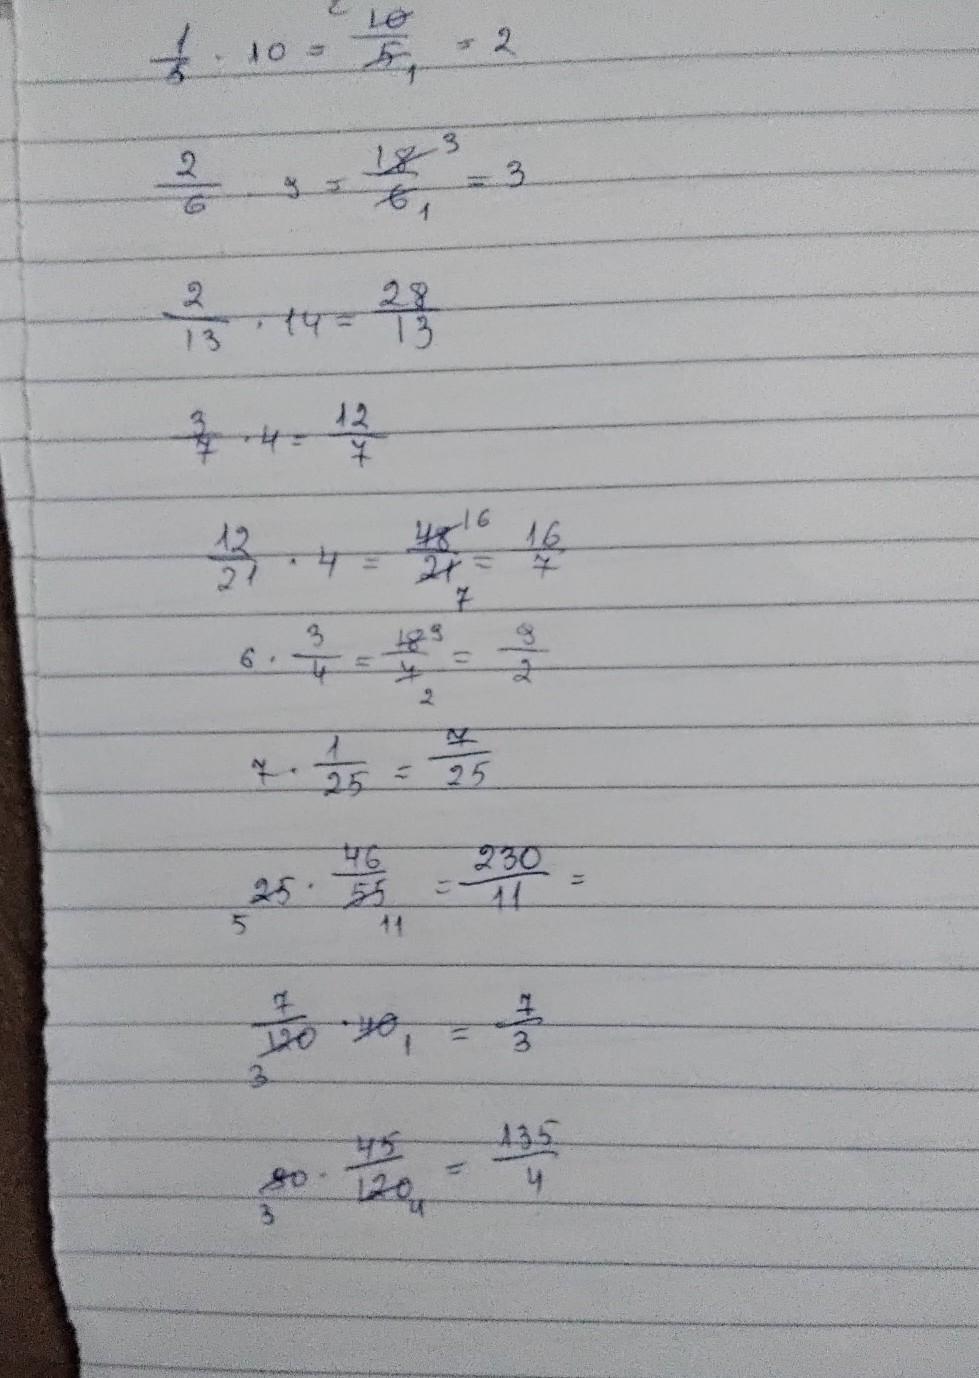 1/5 · 10 = 10/5 2 1 = 2
2/6 · 9 = 18/6 3 1 = 3
2/13 · 14 = 28/13
3/7 · 4 = 12/7
12/21 · 4 = 48/21 16 7 = 16/7
6 · 3/4 = 18/4 9 2 = 9/2
7 · 1/25 = 7/25
25 5 · 46/55 11 = 230/11 =
7/120 3 · 40 1 = 7/3
90 3 · 45/120 4 = 135/4